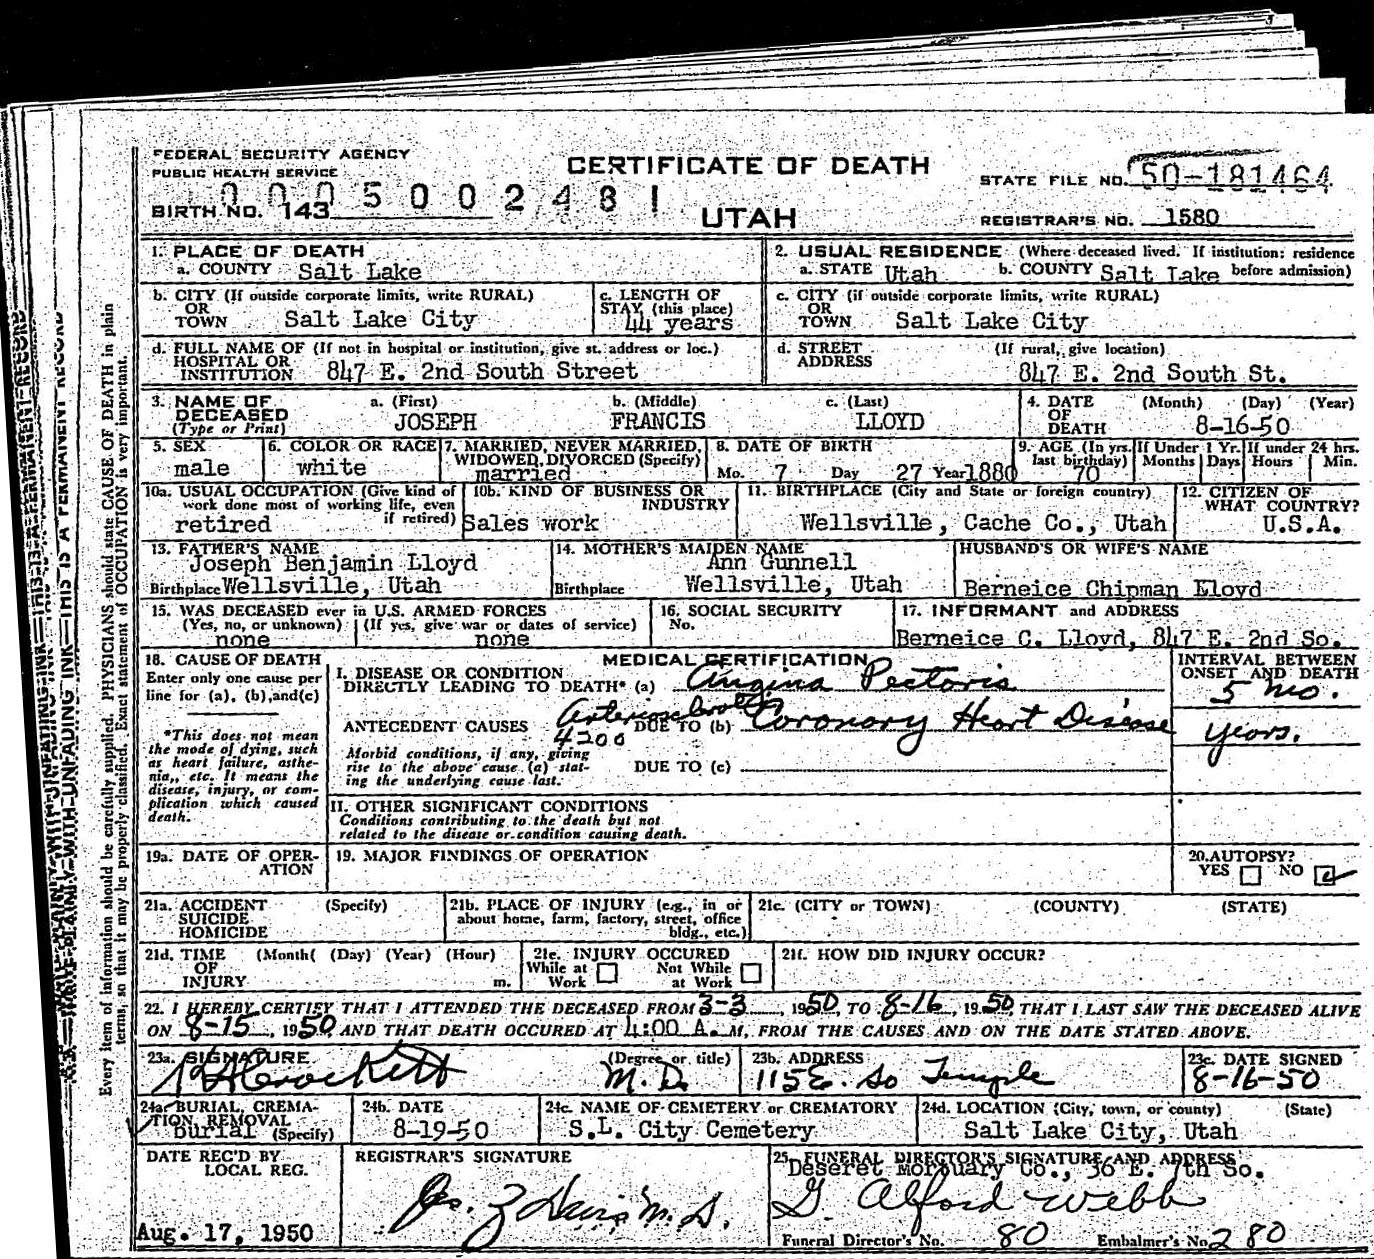 FEDERAL SECURITY AGENCY
PUBLIC HEALTH SERVICE
CERTIFICATE OF DEATH
STATE FILE NO. 50-181464
0 0 0 5 0 0 2 4 8 1
BIRTH NO. 143
UTAH
REGISTRAR'S NO. 1580
1. PLACE OF DEATH
a. COUNTY Salt Lake
2. USUAL RESIDENCE (Where deceased lived. If institution: residence
a. STATE Utah b. COUNTY Salt Lake before admission)
b. CITY (If outside corporate limits, write RURAL)
OR
TOWN Salt Lake City
c. LENGTH OF
STAY (this place)
44 years
c. CITY (if outside corporate limits, write RURAL)
OR
TOWN Salt Lake City
d. FULL NAME OF (If not in hospital or institution, give st. address or loc.)
HOSPITAL OR
INSTITUTION 847 E. 2nd South Street
d. STREET (If rural, give location)
ADDRESS
847 E. 2nd South St.
3. NAME OF a. (First) b. (Middle) c. (Last)
DECEASED
(Type or Print) JOSEPH FRANCIS LLOYD
4. DATE (Month) (Day) (Year)
OF
DEATH 8-16-50
5. SEX
male
6. COLOR OR RACE
white
7. MARRIED, NEVER MARRIED,
WIDOWED, DIVORCED (Specify)
married
8. DATE OF BIRTH
Mo. 7 Day 27 Year 1880
9. AGE (In yrs. last birthday)
70
If Under 1 Yr.
Months Days
If under 24 hrs.
Hours Min.
10a. USUAL OCCUPATION (Give kind of
work done most of working life, even
if retired)
retired
10b. KIND OF BUSINESS OR
INDUSTRY
Sales work
11. BIRTHPLACE (City and State or foreign country)
Wellsville, Cache Co., Utah
12. CITIZEN OF
WHAT COUNTRY?
U.S.A.
13. FATHER'S NAME
Joseph Benjamin Lloyd
Birthplace Wellsville, Utah
14. MOTHER'S MAIDEN NAME
Ann Gunnell
Birthplace Wellsville, Utah
HUSBAND'S OR WIFE'S NAME
Berneice Chipman Lloyd
15. WAS DECEASED ever in U.S. ARMED FORCES
(Yes, no, or unknown) (If yes, give war or dates of service)
none none
16. SOCIAL SECURITY
No.
17. INFORMANT and ADDRESS
Berneice C. Lloyd, 847 E. 2nd So.
18. CAUSE OF DEATH
Enter only one cause per
line for (a), (b), and (c)
*This does not mean
the mode of dying, such
as heart failure, asthe-
nia,, etc. It means the
disease, injury, or com-
plication which caused
death.
MEDICAL CERTIFICATION
I. DISEASE OR CONDITION
DIRECTLY LEADING TO DEATH* (a) Angina Pectoris
ANTECEDENT CAUSES Arteriosclerotic
4200 DUE TO (b) Coronary Heart Disease
Morbid conditions, if any, giving
rise to the above cause (a) stat-
ing the underlying cause last.
DUE TO (c)
INTERVAL BETWEEN
ONSET AND DEATH
5 mo.
years.
II. OTHER SIGNIFICANT CONDITIONS
Conditions contributing to the death but not
related to the disease or condition causing death.
19a. DATE OF OPER-
ATION
19. MAJOR FINDINGS OF OPERATION
20. AUTOPSY?
YES NO
21a. ACCIDENT (Specify)
SUICIDE
HOMICIDE
21b. PLACE OF INJURY (e.g., in or
about home, farm, factory, street, office
bldg., etc.)
21c. (CITY or TOWN) (COUNTY) (STATE)
21d. TIME (Month( (Day) (Year) (Hour)
OF
INJURY m.
21e. INJURY OCCURED
While at Work Not While at Work
21f. HOW DID INJURY OCCUR?
22. I HEREBY CERTIFY THAT I ATTENDED THE DECEASED FROM 3-3, 1950, TO 8-16, 1950, THAT I LAST SAW THE DECEASED ALIVE
ON 8-15, 1950, AND THAT DEATH OCCURED AT 4:00 A. M, FROM THE CAUSES AND ON THE DATE STATED ABOVE.
23a. SIGNATURE (Degree or title)
Crockett M.D.
23b. ADDRESS
115 E. So Temple
23c. DATE SIGNED
8-16-50
24a. BURIAL, CREMA-
TION, REMOVAL
burial (Specify)
24b. DATE
8-19-50
24c. NAME OF CEMETERY or CREMATORY
S.L. City Cemetery
24d. LOCATION (City, town, or county) (State)
Salt Lake City, Utah
DATE REC'D BY
LOCAL REG.
Aug. 17, 1950
REGISTRAR'S SIGNATURE
M.D.
25. FUNERAL DIRECTOR'S SIGNATURE AND ADDRESS
Deseret Mortuary Co., 36 E. 7th So.
G. Alford Webb
Funeral Director's No. 80 Embalmer's No. 280
Every item of information should be carefully supplied. PHYSICIANS should state CAUSE OF DEATH in plain
terms, so that it may be properly classified. Exact statement of OCCUPATION is very important.
WITH UNFADING INK—THIS IS A PERMANENT RECORD